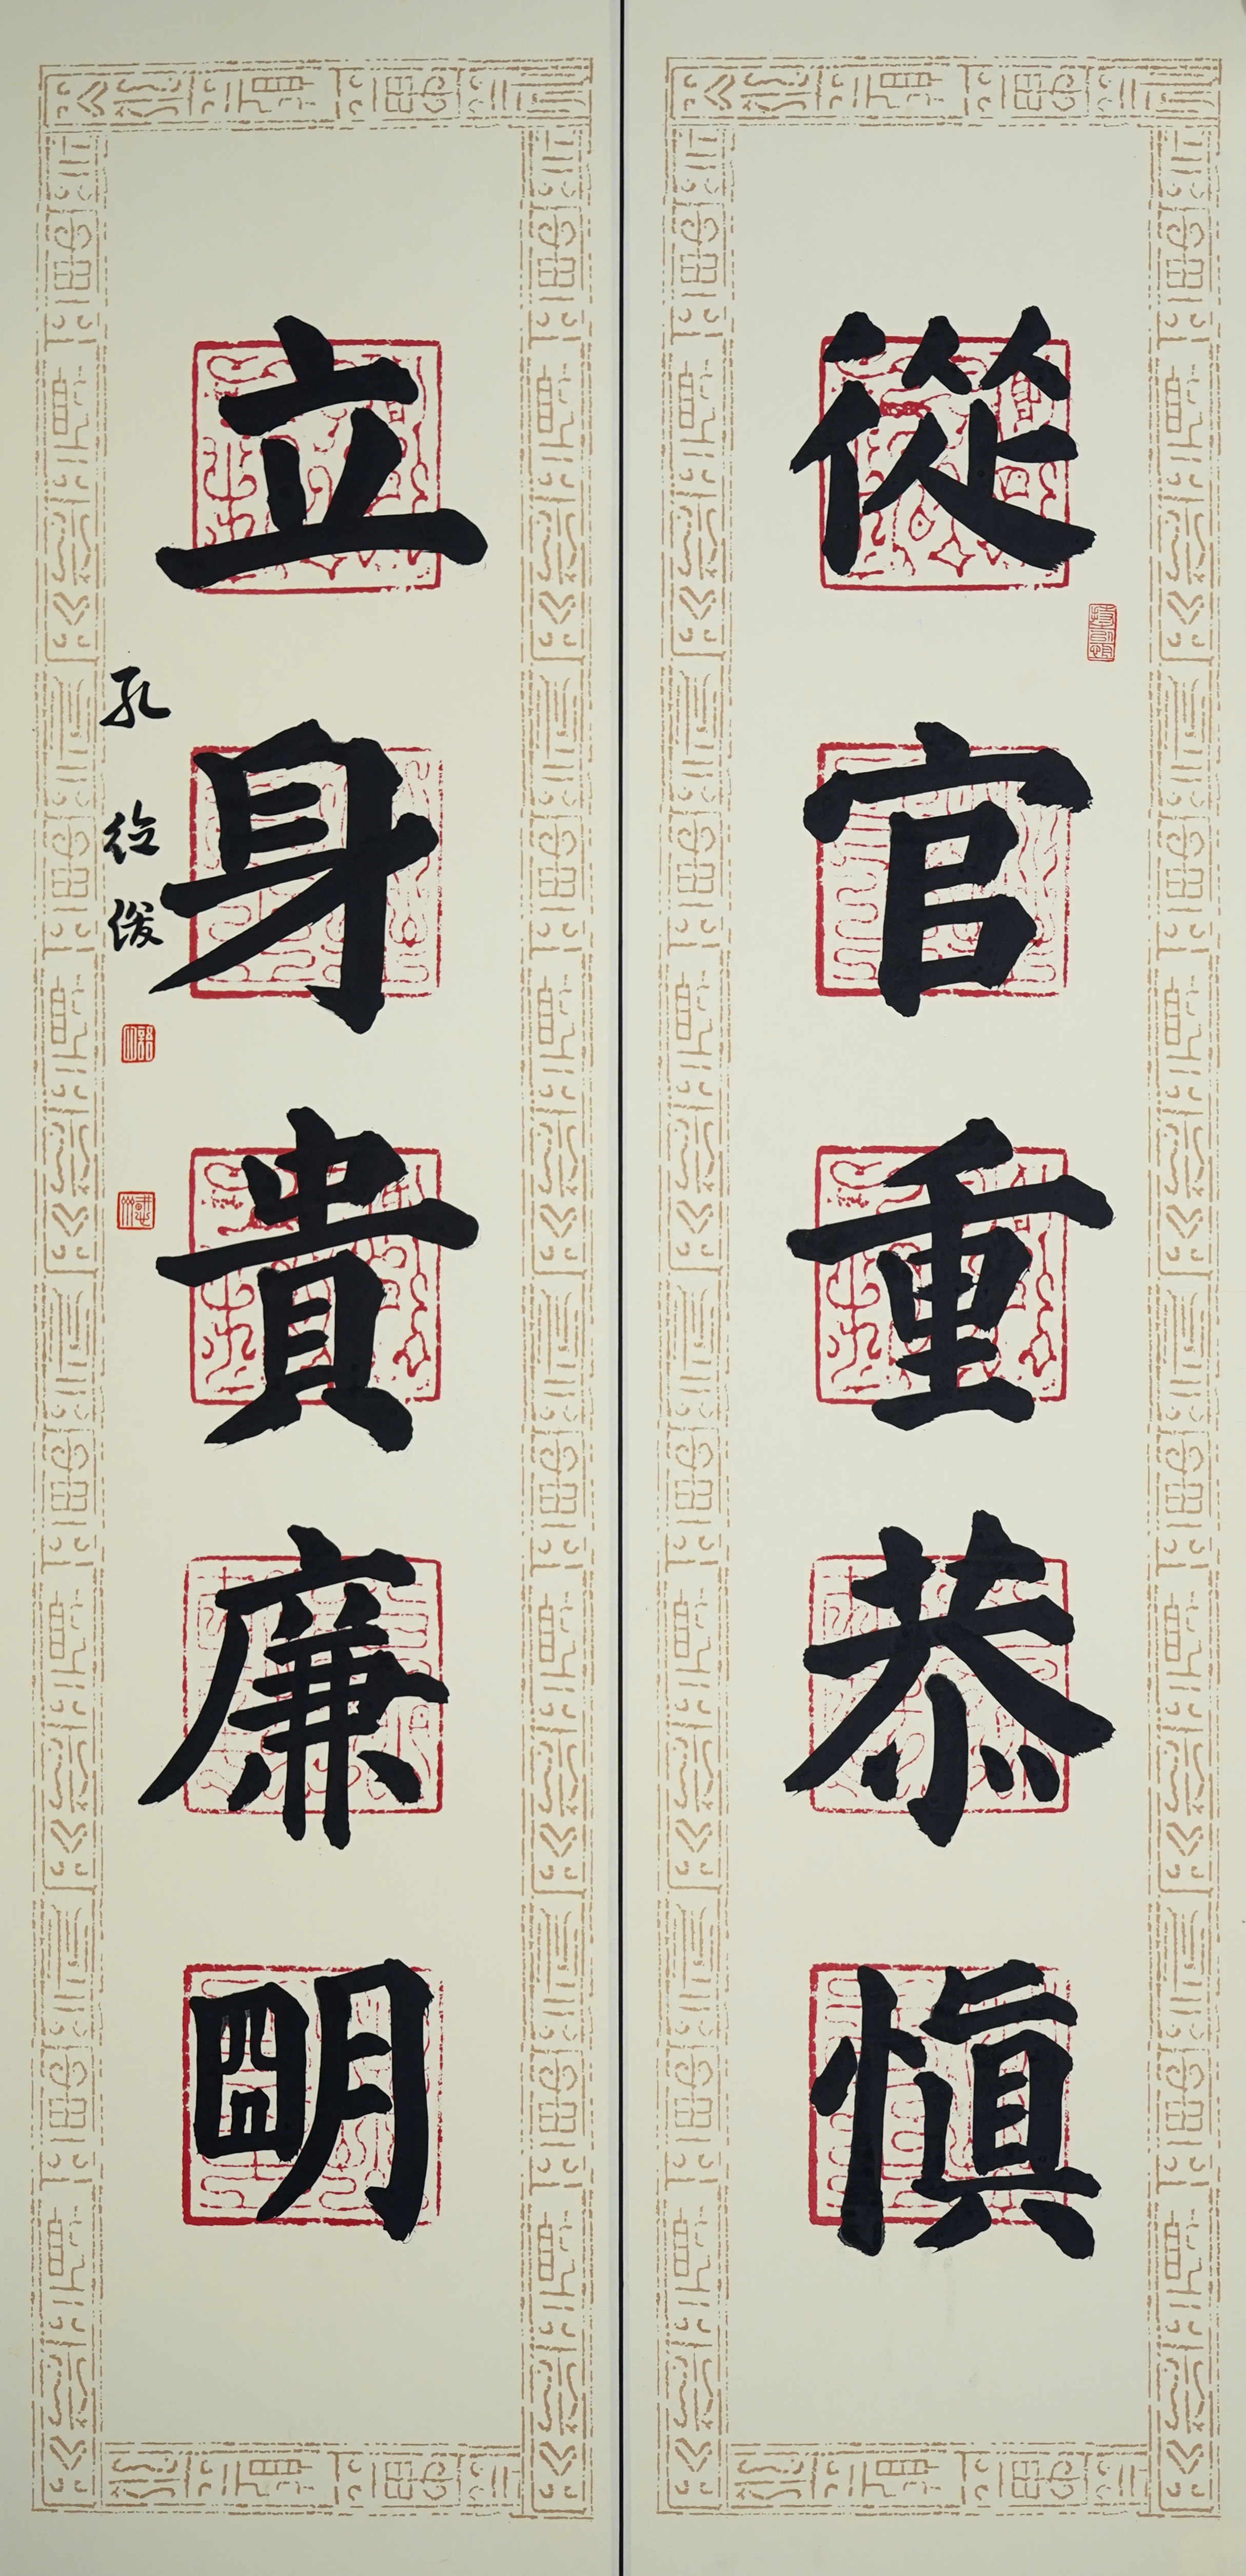 從官重恭慎
立身貴廉明
孔德俊